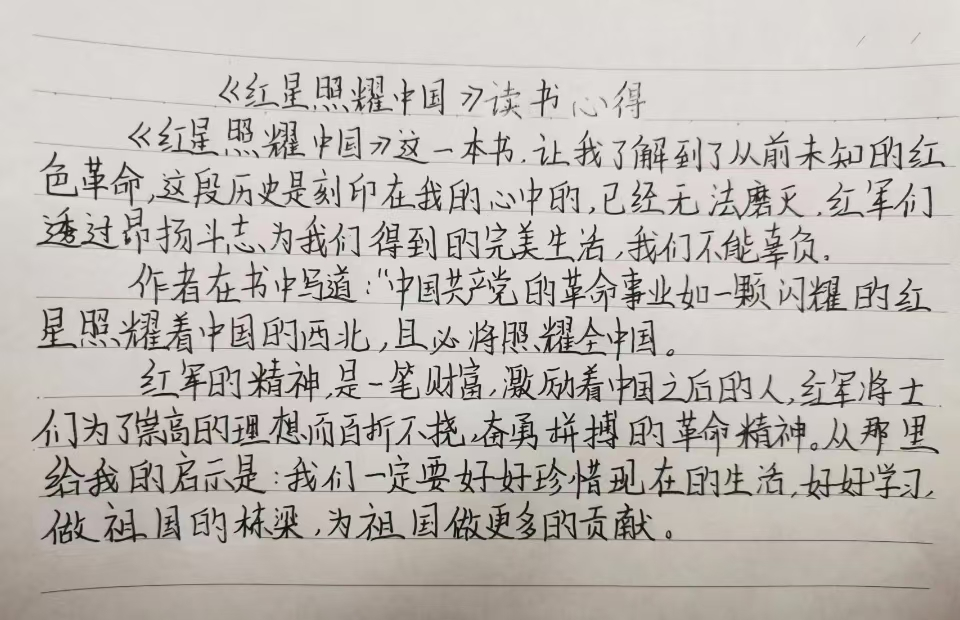 《红星照耀中国》读书心得
《红星照耀中国》这一本书,让我了解到了从前未知的红
色革命,这段历史是刻印在我的心中的,已经无法磨灭,红军们
透过昂扬斗志、为我们得到的完美生活,我们不能辜负.
作者在书中写道:“中国共产党的革命事业如一颗闪耀的红
星照耀着中国的西北,且必将照耀全中国。
红军的精神,是一笔财富,激励着中国之后的人,红军将士
们为了崇高的理想而百折不挠,奋勇拼搏的革命精神。从那里
给我的启示是:我们一定要好好珍惜现在的生活,好好学习,
做祖国的栋梁,为祖国做更多的贡献。